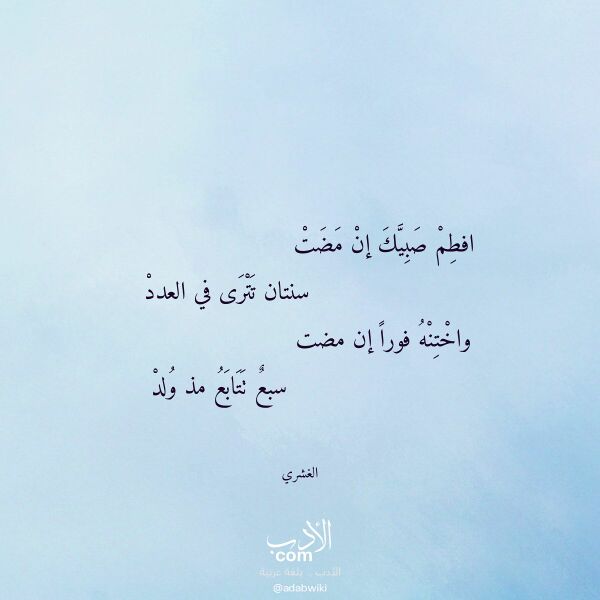 افطِمْ صَبِيَّكَ إنْ مَضَتْ
سنتان تَتْرَى في العددْ
واخْتِنْهُ فوراً إن مضت
سبعٌ تَتَابَعُ مذ وُلدْ
الغشري
الأدب
com
الأدب .. بلغة عربية
@adabwiki